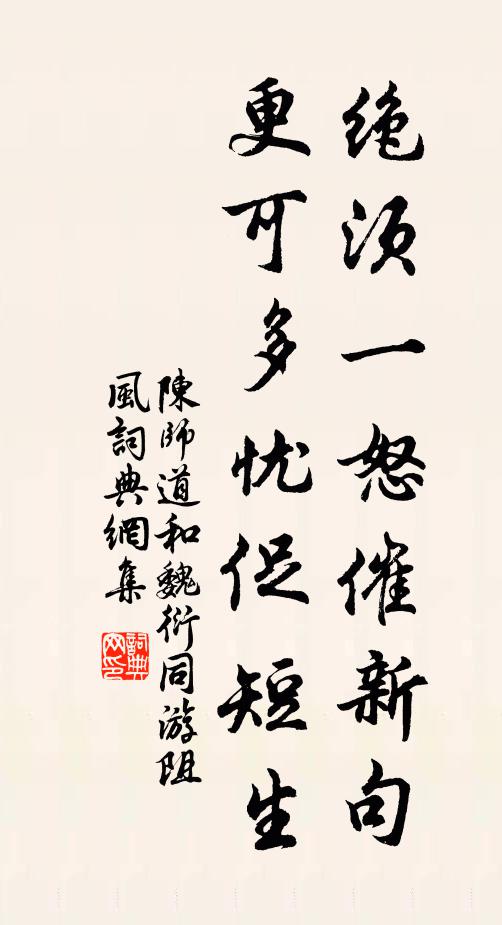 绝须一怒催新句
更可多忧促短生
陳師道和魏衍同游阻
風詞典網集
詞典
网印